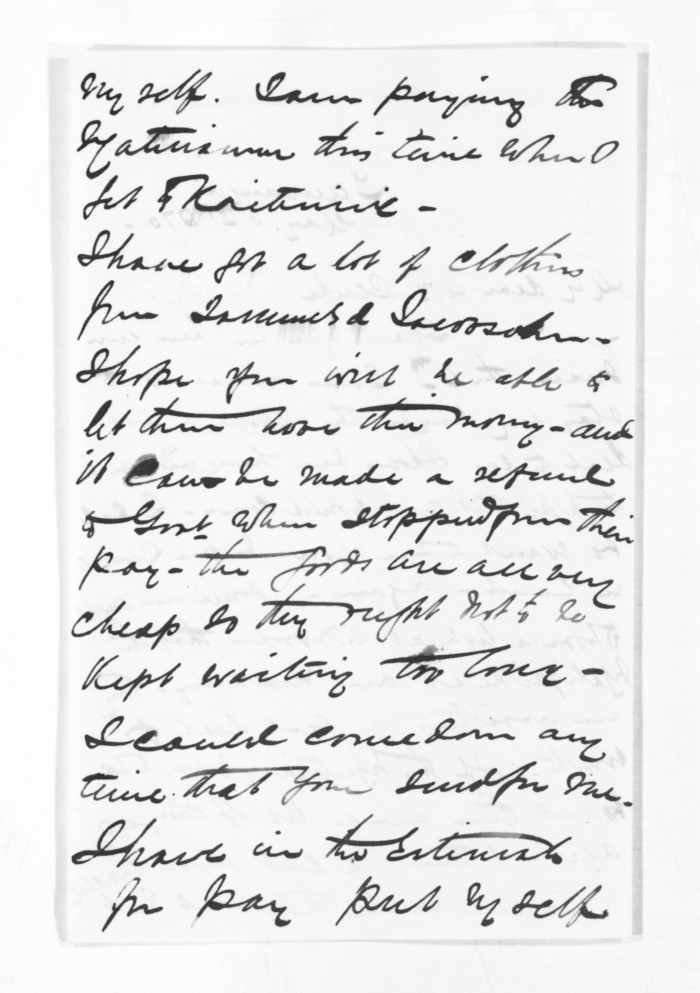 Myself. I am paying the
Ngatiranui this time when I
get to Kaiteriria -
I have got a lot of clothing
from Samuel & Jacobsohn -
I hope you will be able to
let them have the money - and
it can be made a refund
to Govt. when stopped from their
pay - the goods are all very
cheap so they right not to be
kept waiting too long -
I could come down any
time that you send for me.
I have in the Estimate
for pay put myself